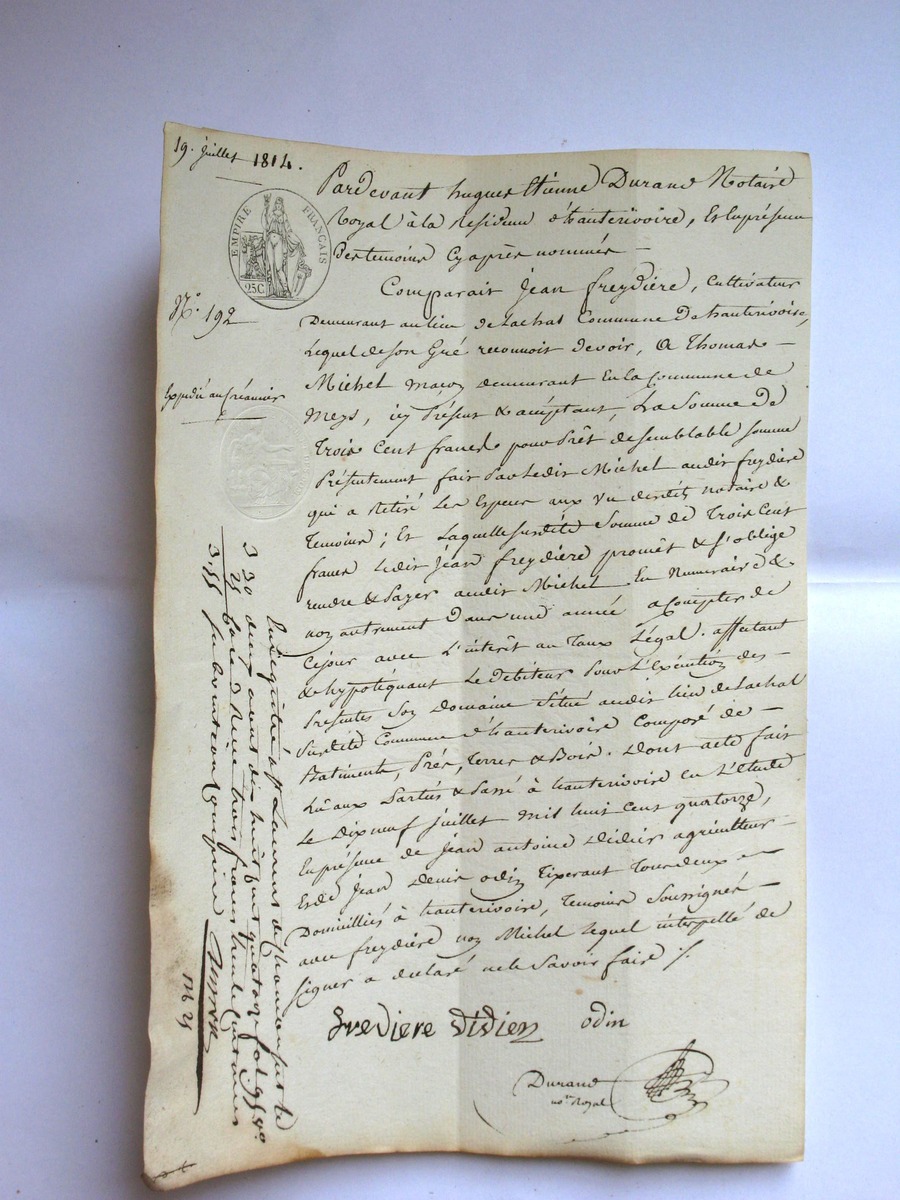 19. juillet 1814.
EMPIRE FRANÇAIS
25C
N.o 192
Expédié au Créancier
Pardevant hugues Etienne Durand Notaire
Royal à la Residence d'hauterivoire, Et En présence
Des temoins Cy après nommés —
Comparait jean freydière, Cultivateur
Demeurant au lieu de Lachal Commune De hauterivoire,
Lequel de son Gré reconnoit devoir, a Thomas —
Michel maçon demeurant En la Commune de
Meys, icy Présent & acceptant, La Somme De
Trois Cent francs pour Prêt de semblable somme
Présentement fait Par Ledit Michel audit freydière
qui a Retiré Les Especes aux vu desdits notaire &
Temoins ; Et Laquelle susdite Somme de Trois Cent
francs Ledit jean freydière promêt & s'oblige
rendre & Payer audit Michel En Numeraire &
non autrement Dans une année a Compter de
Cejour avec L'intérêt au Taux Légal. affectant
& hypotéquant Le Debiteur Pour L'Exécution des —
Presentes Son Domaine Situé audit Lieu de Lachal
Susdite Commune d'hauterivoire Composé de —
Batiments, Prés, Terres & Bois. Dont acte fait
Lû aux Parties & Passé à hauterivoire en L'Etude
Le Dix neuf juillet mil huit Cent quatorze,
En présence de jean antoine Didier agriculteur —
Et de jean Denis odin Tixerant Tous deux —
Domicilliés à hauterivoire, Temoins Soussignés —
avec freydière non Michel Lequel interpellé de
signer a declaré ne le Savoir faire ./.
fredière didien odin
Durand
no.re Royal
Enregistré à St Laurent de Chamousset le
deux aout dix huit cent quatorze fol. 95
3 30
25
3,55